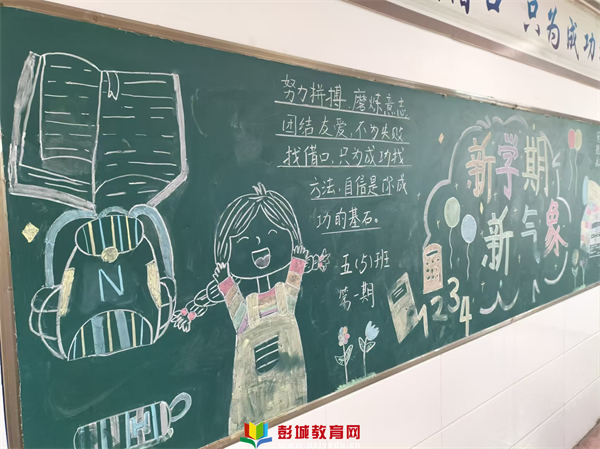 只为成功
努力拼搏,磨炼意志
团结友爱,不为失败
找借口,只为成功找
方法,自信是你成
功的基石。
五(5)班
第 期
新学期
新气象
1234
N
彭城教育网